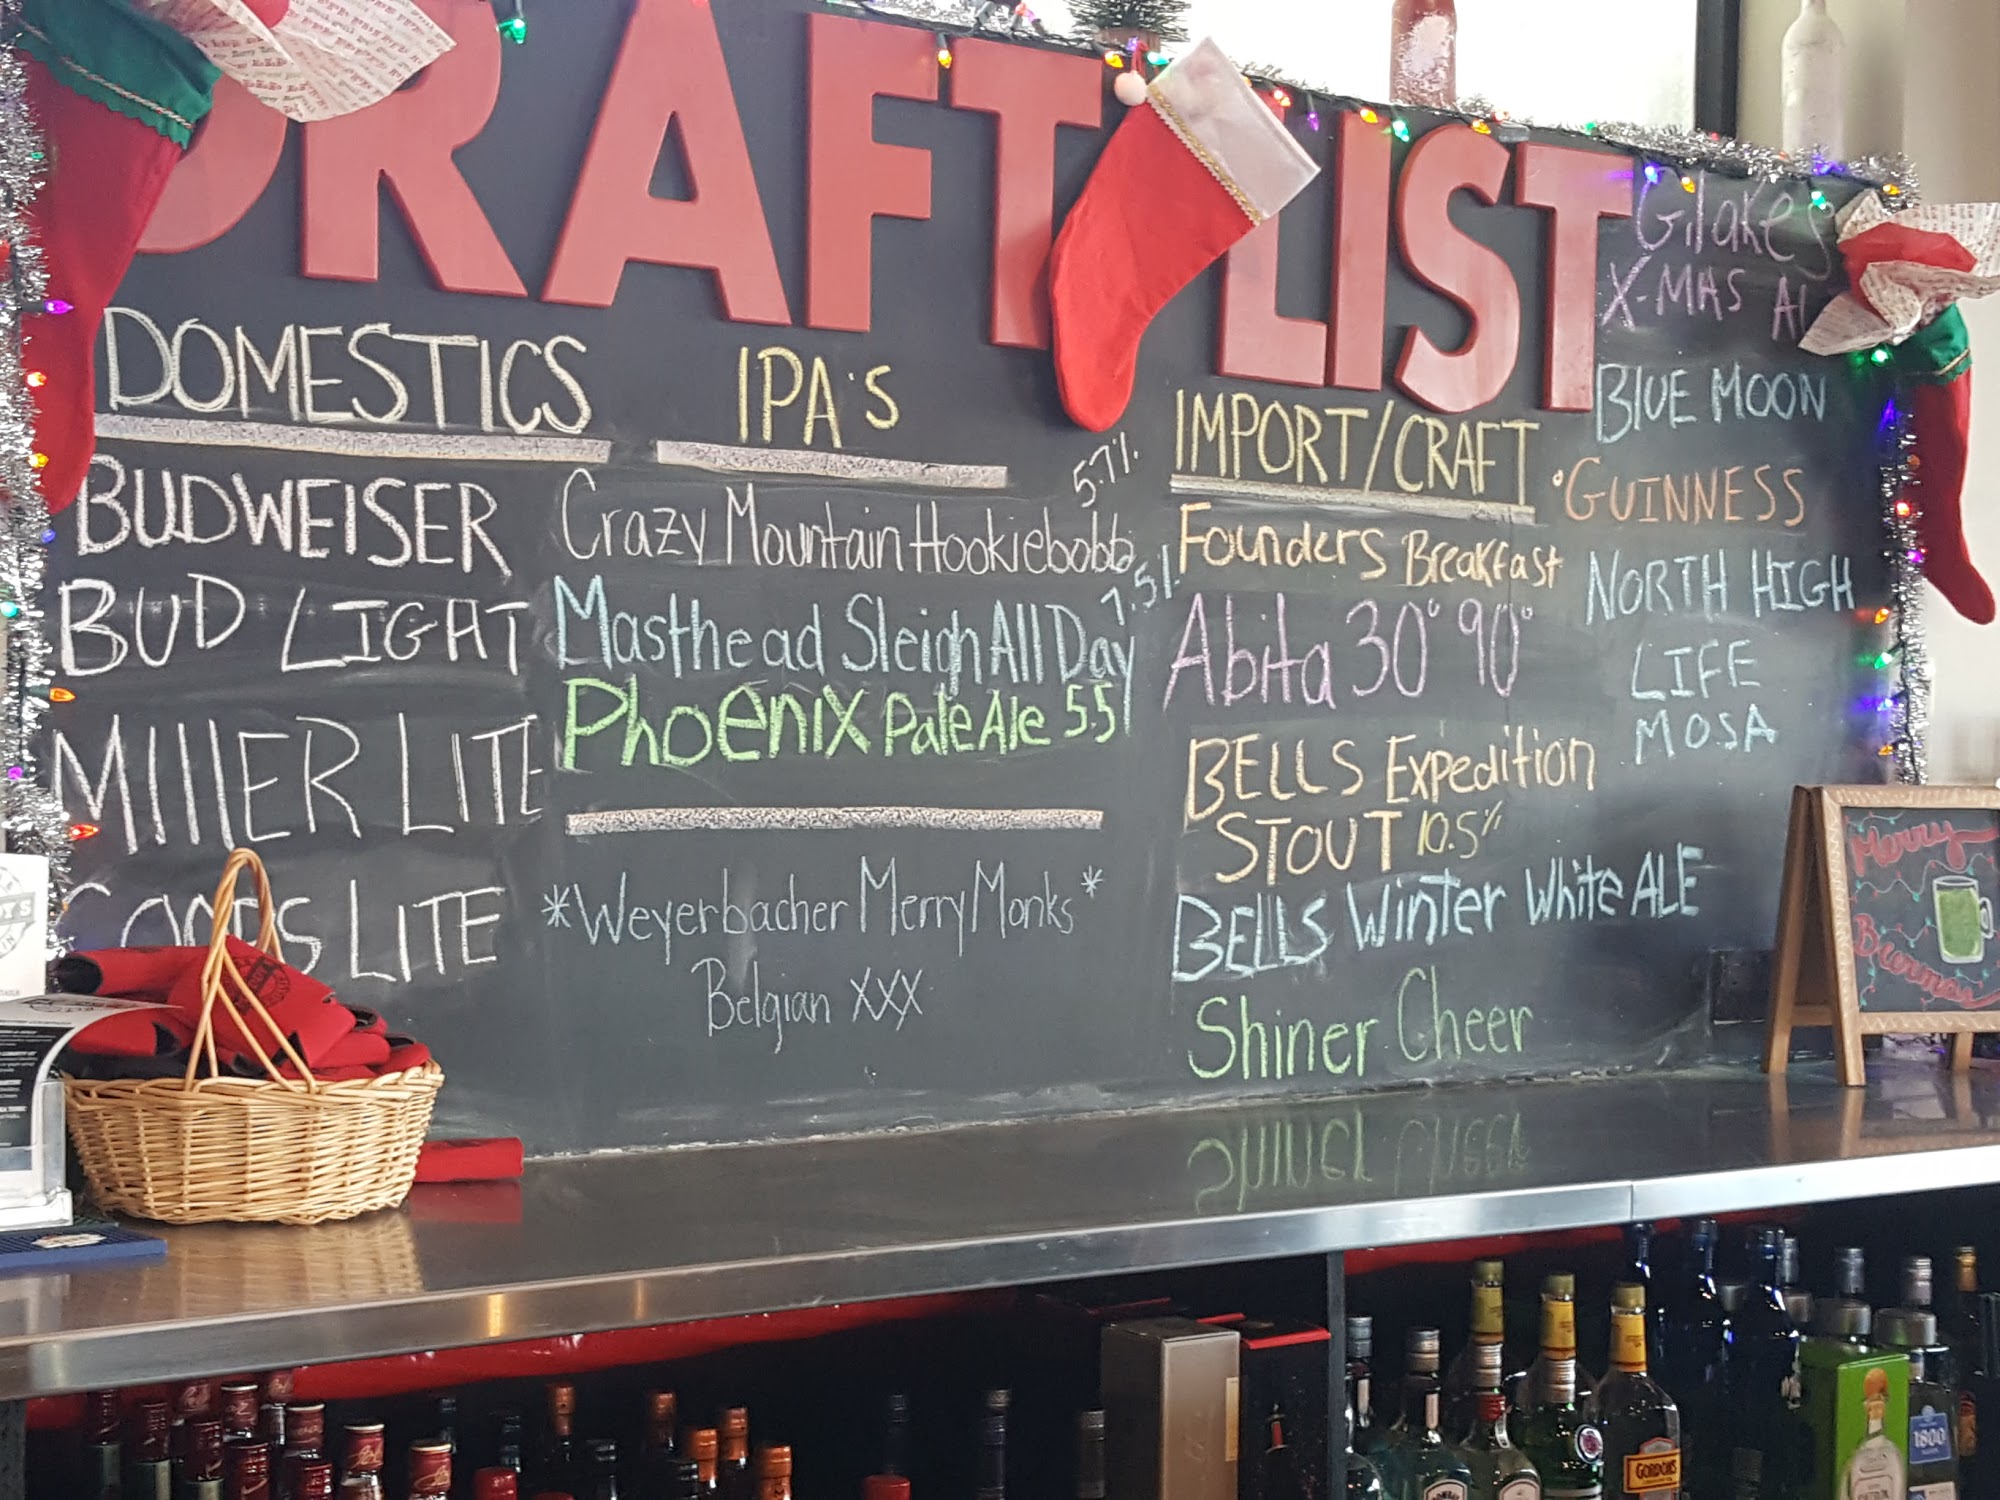 DRAFT LIST
DOMESTICS
BUDWEISER
BUD LIGHT
MIllER LITE
COORS LITE
IPA'S
Crazy Mountain Hookiebobb 5.7%
Masthead Sleigh All Day 7.5%
Phoenix Pale Ale 5.5
*Weyerbacher Merry Monks*
Belgian XXX
IMPORT/CRAFT
Founders Breakfast
Abita 30° 90°
BELLS Expedition
STOUT 10.5%
BELLS Winter White ALE
Shiner Cheer
X-MAS
BLUE MOON
GUINNESS
NORTH HIGH
LIFE
MOSA
Merry
GORDON'S
1800